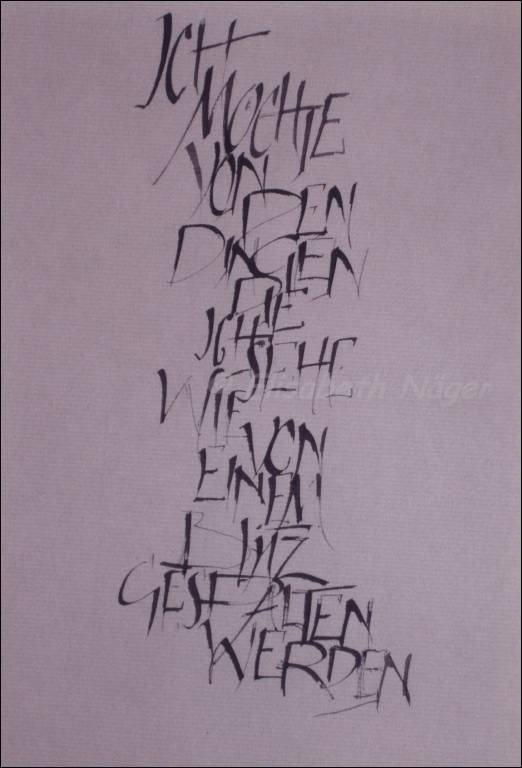 ICH
MÖCHTE
VON DEN
DINGEN
DIE
ICH SEHE
WIE VON
EINEM
BLITZ
GESPALTEN
WERDEN
© Elisabeth Näger